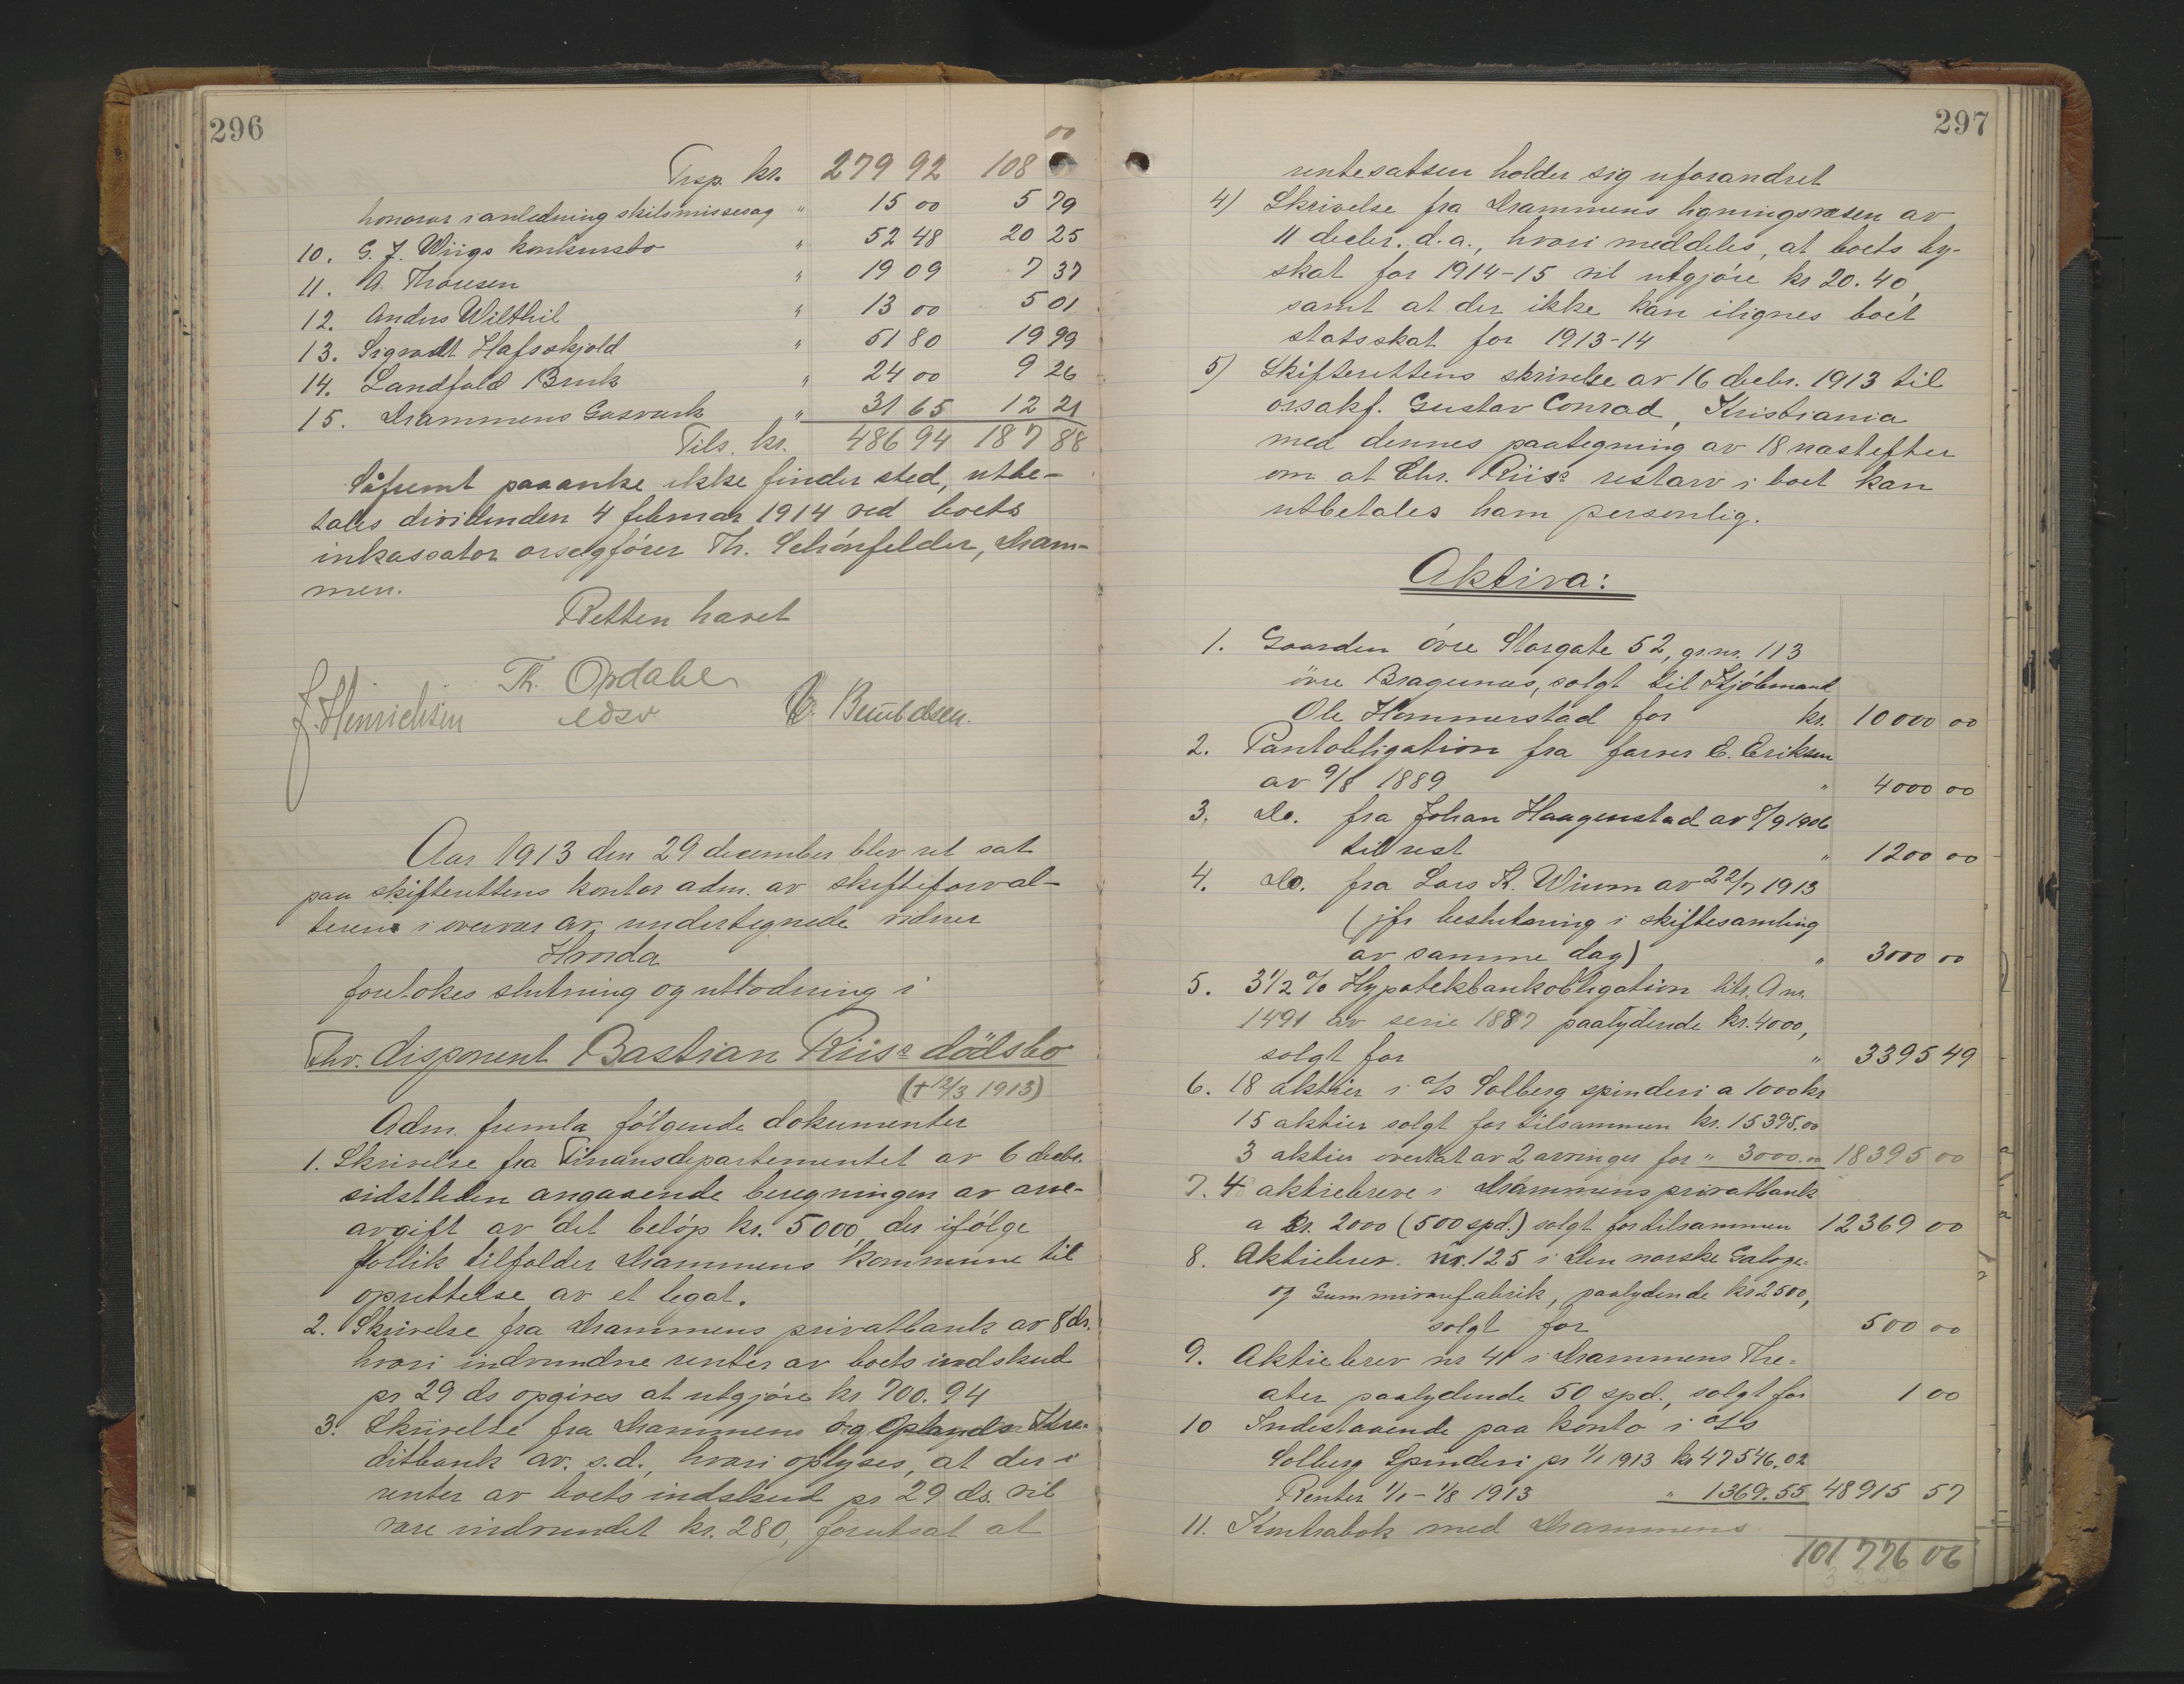 296
00
Trsp. kr. 279 92 108
honorar i anledning skilsmissesag " 15 00 5 79
10. G. J. Wiigs konkursbo " 52 48 20 25
11. A. Thoresen " 19 09 7 37
12. Anders Wilthil " 13 00 5 01
13. Sigvardt Hafskjold " 51 80 19 99
14. Landfald Bruk " 24 00 9 26
15. Drammens Gasverk " 31 65 12 21
Tils. kr. 486 94 187 88
Såfremt paaanke ikke finder sted, utbe-
tales dividenden 4 februar 1914 ved boets
inkassator orsagfører Th. Schönfelder, Dram-
men.
Retten hævet
Th. Opdahl
J. Hinrichsen edsv
Aar 1913 den 29 december blev ret sat
paa skifterettens kontor adm. av skifteforval-
teren i overvær av undertegnede vidner
Hvorda
foretokes slutning og utlodning i
Thv. disponent Bastian Riis's dödsbo
(+ 12/3 1913)
Adm. fremla følgende dokumenter
1. Skrivelse fra Finansdepartementet av 6 decbr.
sidstleden angaaende beregningen av arve-
avgift av det beløp kr. 5000, der ifølge
forlik tilfalder Drammens kommune til
oprettelse av et legat.
2. Skrivelse fra Drammens privatbank av 8 ds.
hvori indvundne renter av boets indskud
pr 29 ds opgives at utgjøre kr 700.94
3. Skrivelse fra Drammens og Oplands Kre-
ditbank av s.d., hvori oplyses, at der i
renter av boets indskud pr 29 ds. vil
være indvundet kr. 280, forutsat at
297
rentesatsen holder sig uforandret
4) Skrivelse fra Drammens ligningsvæsen av
11 decbr. d.a., hvori meddeles, at boets by-
skat for 1914-15 vil utgjøre kr 20.40,
samt at der ikke kan ilignes boet
statsskat for 1913-14
5) Skifterettens skrivelse av 16 decbr. 1913 til
orsakf. Gustav Conrad, Kristiania
med dennes paategning av 18 næstefter
om at Chr. Riis's restarv i boet kan
utbetales ham personlig.
Aktiva:
1. Gaarden övre Storgate 52, gr.nr. 113
övre Bragernes, solgt til Kjöbmand
Ole Hommerstad for kr. 10000 00
2. Pantobligation fra farver E. Eriksen
av 9/8 1889 " 4000 00
3. Do. fra Johan Haagenstad av 8/9 1906
til rest " 1200 00
4. Do. fra Lars K. Wium av 22/7 1913
(jfr beslutning i skiftesamling
av samme dag) " 3000 00
5. 3 1/2 % Hypotekbankobligation litr. A nr.
1491 av serie 1887 paalydende kr. 4000,
solgt for " 3395 49
6. 18 aktier i a/s Solberg spinderi a 1000 kr
15 aktier solgt for tilsammen kr. 15395.00
3 aktier overtat av 2 arvinger for " 3000.00 18395 00
7. 4 aktiebreve i Drammens privatbank
a kr. 2000 (500 spd.) solgt for tilsammen 12369 00
8. Aktiebrev nr. 125 i Den norske Galoge-
og Gummivarefabrik, paalydende kr 2500,
solgt for 500 00
9. Aktiebrev nr 41 i Drammens The-
ater paalydende 50 spd., solgt for 1 00
10 Indestaaende paa konto i a/s
Solberg Spinderi pr 1/1 1913 kr 47546.02
Renter 1/1 - 1/8 1913 " 1369.55 48915 57
11. Kontrabok med Drammens
101 776 06